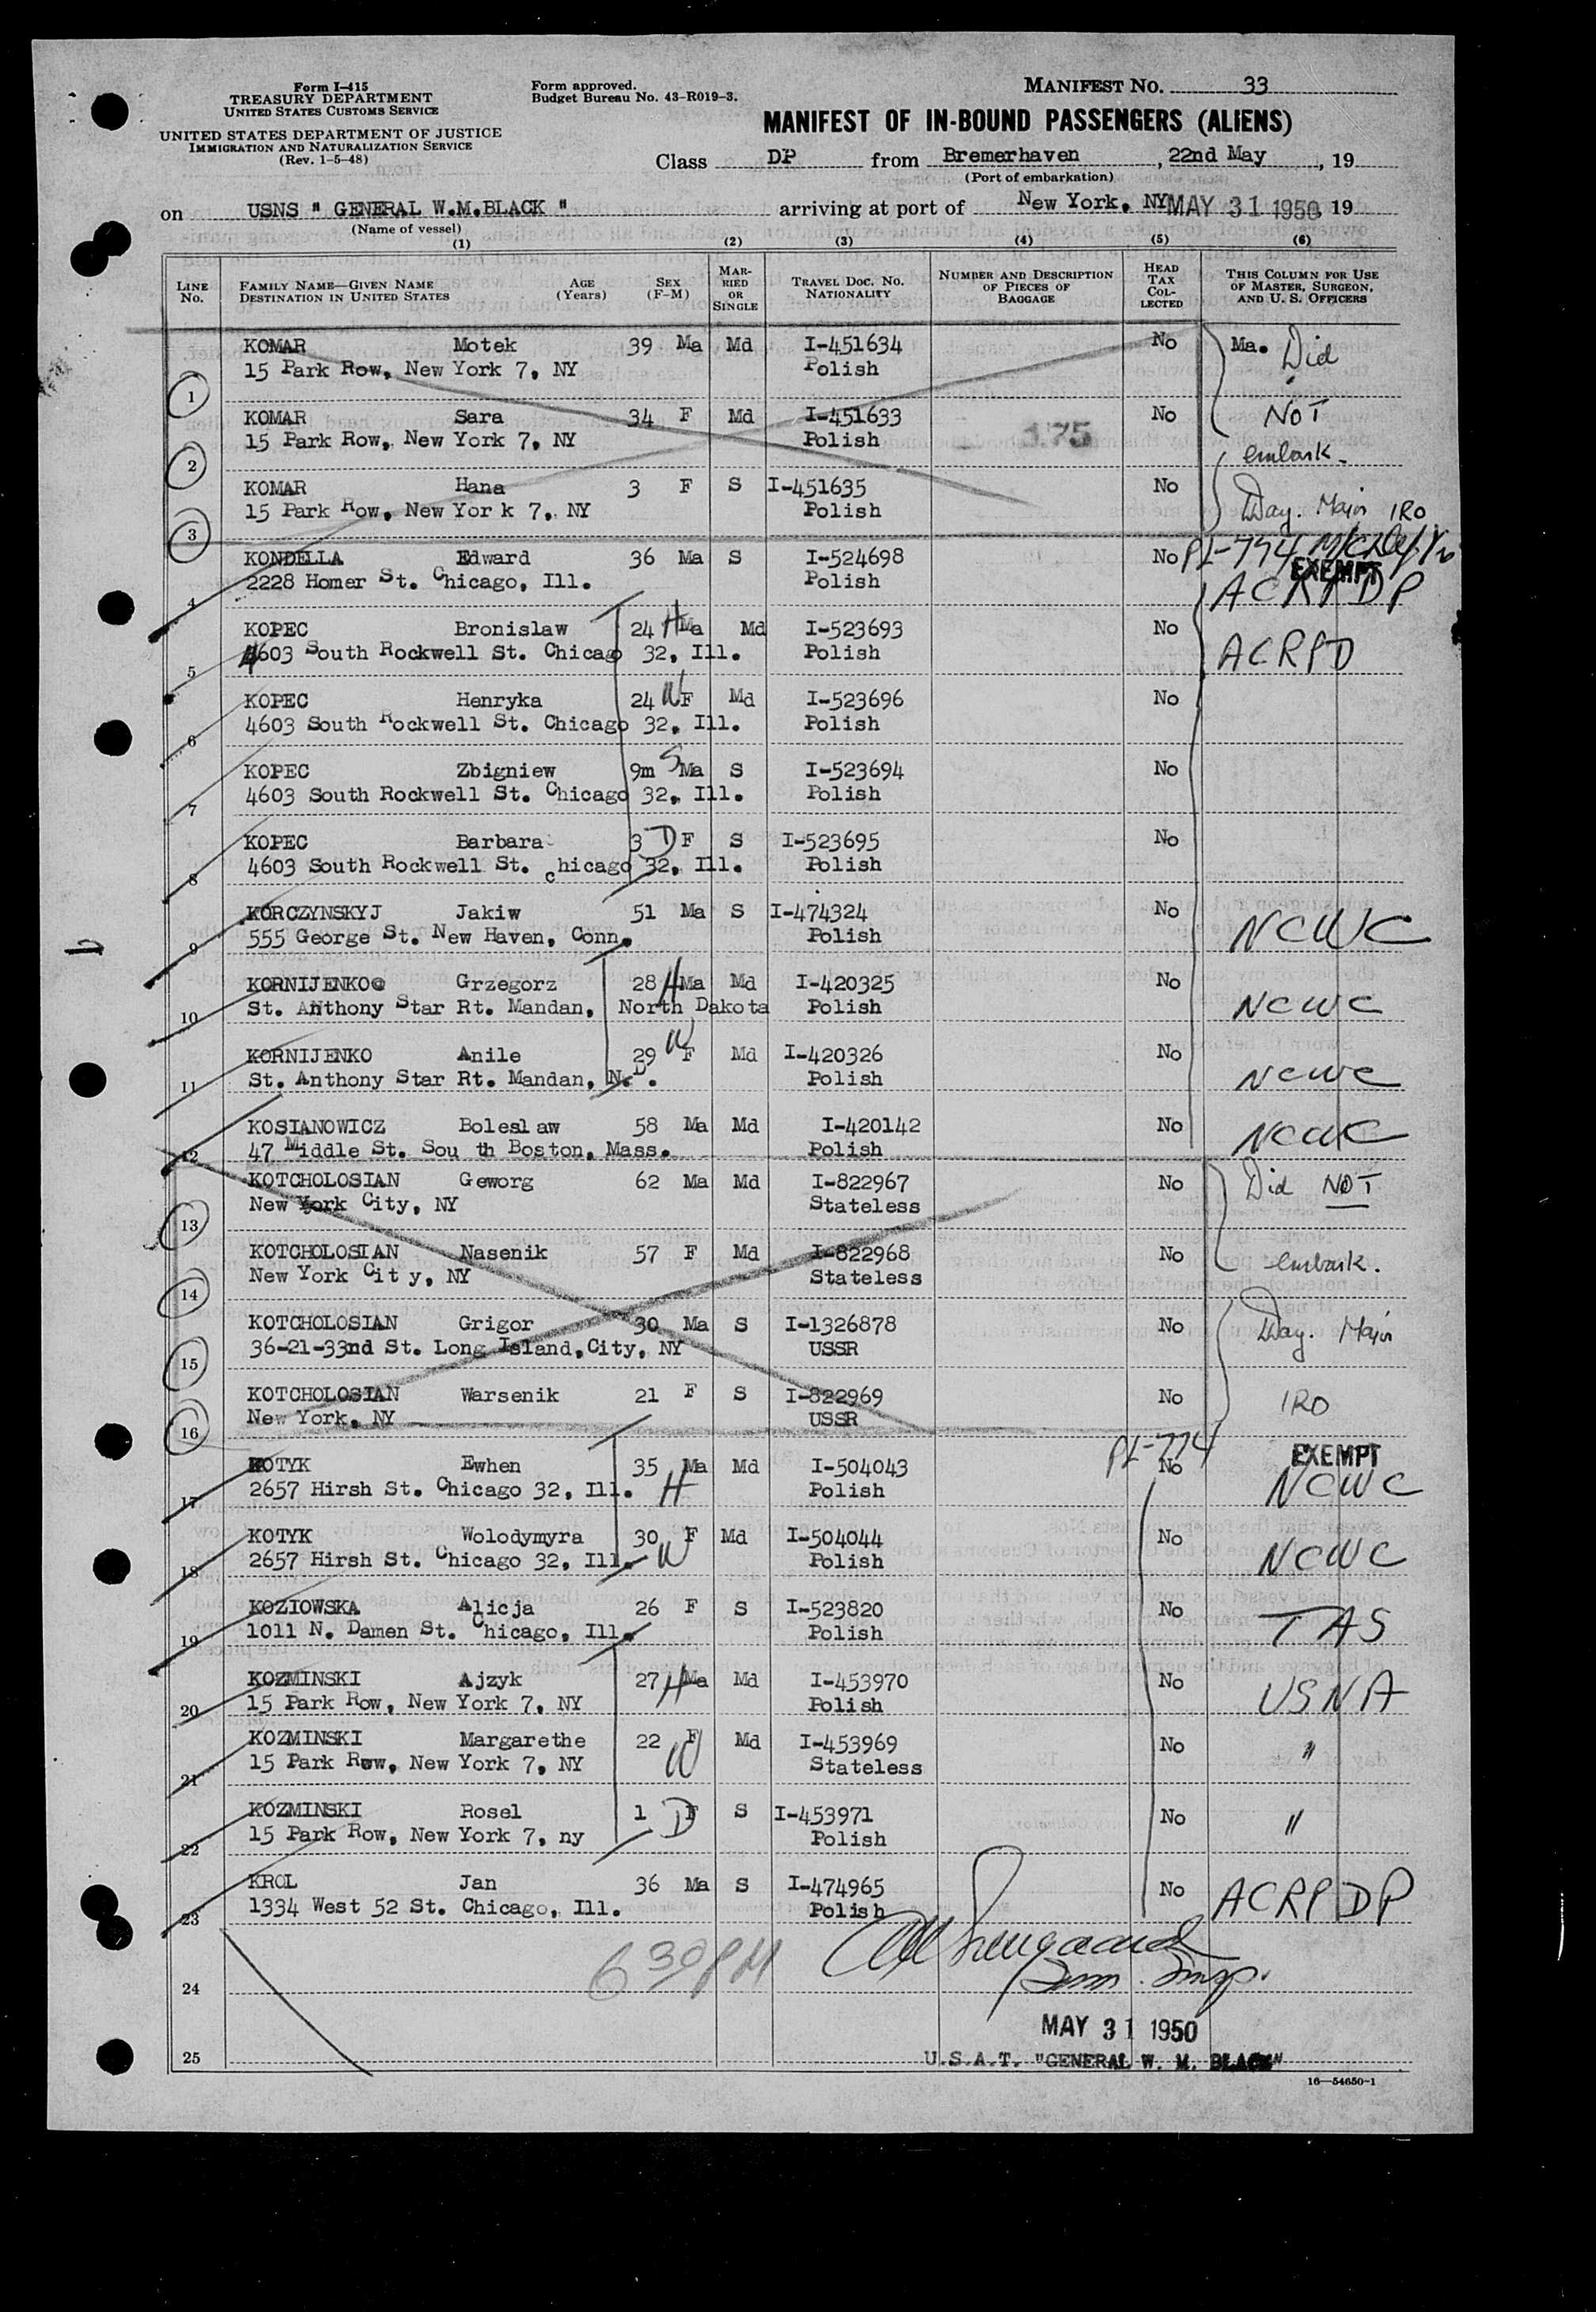 Form I-415
TREASURY DEPARTMENT
UNITED STATES CUSTOMS SERVICE
UNITED STATES DEPARTMENT OF JUSTICE
IMMIGRATION AND NATURALIZATION SERVICE
(Rev. 1-5-48)
Form approved.
Budget Bureau No. 43-R019-3.
MANIFEST NO. 33
MANIFEST OF IN-BOUND PASSENGERS (ALIENS)
Class DP from Bremerhaven, 22nd May, 19
(Port of embarkation)
on USNS " GENERAL W.M.BLACK " arriving at port of New York, NY MAY 31 1950, 19
(Name of vessel)
(1) (2) (3) (4) (5) (6)
LINE No. FAMILY NAME—GIVEN NAME DESTINATION IN UNITED STATES AGE (Years) SEX (F-M) MARRIED OR SINGLE TRAVEL DOC. NO. NATIONALITY NUMBER AND DESCRIPTION OF PIECES OF BAGGAGE HEAD TAX COLLECTED THIS COLUMN FOR USE OF MASTER, SURGEON, AND U. S. OFFICERS
KOMAR Motek 39 Ma Md I-451634 No Ma. Did
1 15 Park Row, New York 7, NY Polish
KOMAR Sara 34 F Md I-451633 No NOT
2 15 Park Row, New York 7, NY Polish 175 embark.
KOMAR Hana 3 F S I-451635 No
3 15 Park Row, New Yor k 7, NY Polish Day. Major IRO
KONDELLA Edward 36 Ma S I-524698 No PL-774 EXEMPT
4 2228 Homer St. Chicago, Ill. Polish ACRPDP
KOPEC Bronislaw 24 H Ma Md I-523693 No
5 4603 South Rockwell St. Chicago 32, Ill. Polish ACRPD
KOPEC Henryka 24 W F Md I-523696 No
6 4603 South Rockwell St. Chicago 32, Ill. Polish
KOPEC Zbigniew 9m S Ma S I-523694 No
7 4603 South Rockwell St. Chicago 32, Ill. Polish
KOPEC Barbara 3 D F S I-523695 No
8 4603 South Rockwell St. chicago 32, Ill. Polish
KORCZYNSKYJ Jakiw 51 Ma S I-474324 No
9 555 George St. New Haven, Conn. Polish NCWC
KORNIJENKO Grzegorz 28 H Ma Md I-420325 No
10 St. Anthony Star Rt. Mandan, North Dakota Polish NCWC
KORNIJENKO Anile 29 W F Md I-420326 No
11 St. Anthony Star Rt. Mandan, N.D. Polish NCWC
KOSIANOWICZ Boleslaw 58 Ma Md I-420142 No NCWC
12 47 Middle St. Sou th Boston, Mass. Polish
KOTCHOLOSIAN Geworg 62 Ma Md I-822967 No Did NOT
13 New York City, NY Stateless
KOTCHOLOSIAN Nasenik 57 F Md I-822968 No embark.
14 New York Cit y, NY Stateless
KOTCHOLOSIAN Grigor 30 Ma S I-1326878 No Day. Major
15 36-21-33nd St. Long Island,City, NY USSR
KOTCHOLOSIAN Warsenik 21 F S I-822969 No IRO
16 New York, NY USSR
KOTYK Ewhen 35 Ma Md I-504043 PL-774 No EXEMPT
17 2657 Hirsh St. Chicago 32, Ill. H Polish NCWC
KOTYK Wolodymyra 30 F Md I-504044 No
18 2657 Hirsh St. Chicago 32, Ill. W Polish NCWC
KOZIOWSKA Alicja 26 F S I-523820 No
19 1011 N. Damen St. Chicago, Ill. Polish TAS
KOZMINSKI Ajzyk 27 H Ma Md I-453970 No
20 15 Park Row, New York 7, NY Polish USNA
KOZMINSKI Margarethe 22 F Md I-453969 No "
21 15 Park Row, New York 7, NY W Stateless
KOZMINSKI Rosel 1 D F S I-453971 No "
22 15 Park Row, New York 7, ny Polish
KROL Jan 36 Ma S I-474965 No ACRPDP
23 1334 West 52 St. Chicago, Ill. Polish
6 30 PM
Imm. Insp.
24
MAY 31 1950
25 U.S.A.T. "GENERAL W. M. BLACK"
16—54650-1